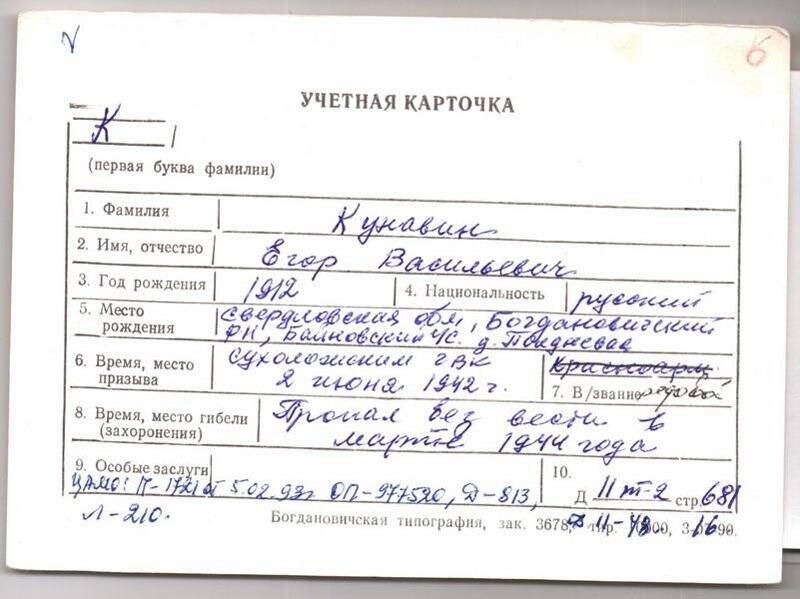 V
6
УЧЕТНАЯ КАРТОЧКА
К
(первая буква фамилии)
1. Фамилия Кунавин
2. Имя, отчество Егор Васильевич
3. Год рождения 1912 4. Национальность русский
5. Место рождения Свердловская обл, Богдановичский
рн, Байновский с/с. д. Поднёвая
6. Время, место призыва Сухоложским ГВК
2 июня 1942 г.
Красноарм
7. В/звание рядовой
8. Время, место гибели (захоронения) Пропал без вести в
марте 1944 года
9. Особые заслуги
ЦАМО: П-1721 от 5.02.93г ОП-977520, Д-813,
Л-210.
10.
Д II т-2 стр. 681
Богдановичская типография, зак. 3678,